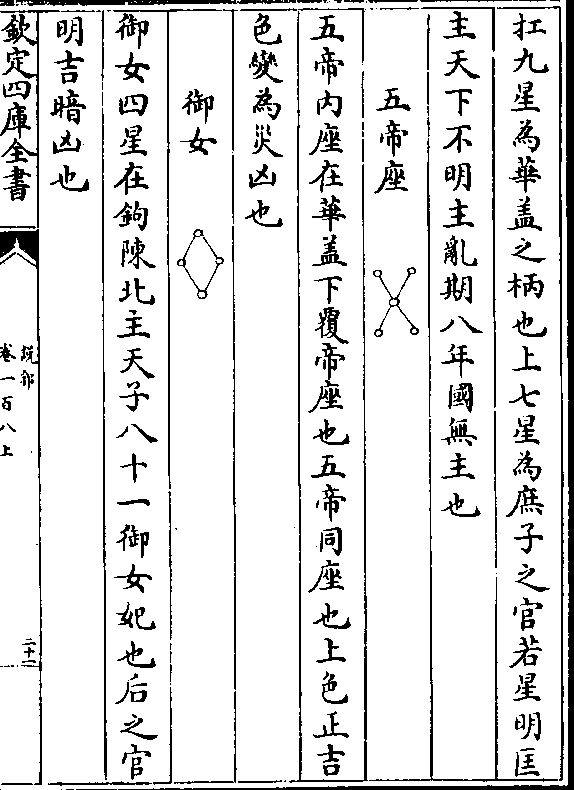 扛九星為華盖之柄也上七星為庶子之官若星明匡
主天下不明主亂期八年國無主也
五帝座
五帝内座在華盖下覆帝座也五帝同座也上色正吉
色變為災凶也
御女
御女四星在鉤陳北主天子八十一御女妃也后之官
明吉暗凶也
欽定四庫全書
説郛
卷一百八上
二十一